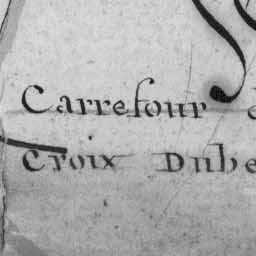 Carrefour
Croix Dube